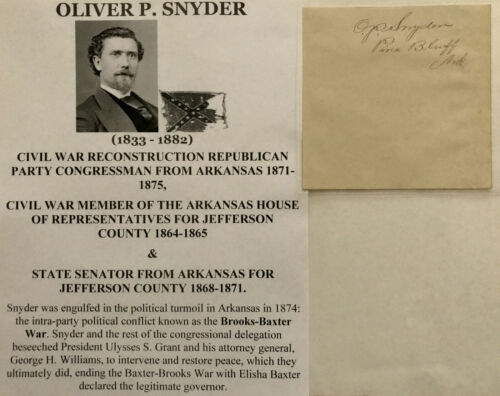 OLIVER P. SNYDER
(1833 - 1882)
CIVIL WAR RECONSTRUCTION REPUBLICAN
PARTY CONGRESSMAN FROM ARKANSAS 1871-
1875,
CIVIL WAR MEMBER OF THE ARKANSAS HOUSE
OF REPRESENTATIVES FOR JEFFERSON
COUNTY 1864-1865
&
STATE SENATOR FROM ARKANSAS FOR
JEFFERSON COUNTY 1868-1871.
Snyder was engulfed in the political turmoil in Arkansas in 1874:
the intra-party political conflict known as the Brooks-Baxter
War. Snyder and the rest of the congressional delegation
beseeched President Ulysses S. Grant and his attorney general,
George H. Williams, to intervene and restore peace, which they
ultimately did, ending the Baxter-Brooks War with Elisha Baxter
declared the legitimate governor.
O P Snyder
Pine Bluff
Ark